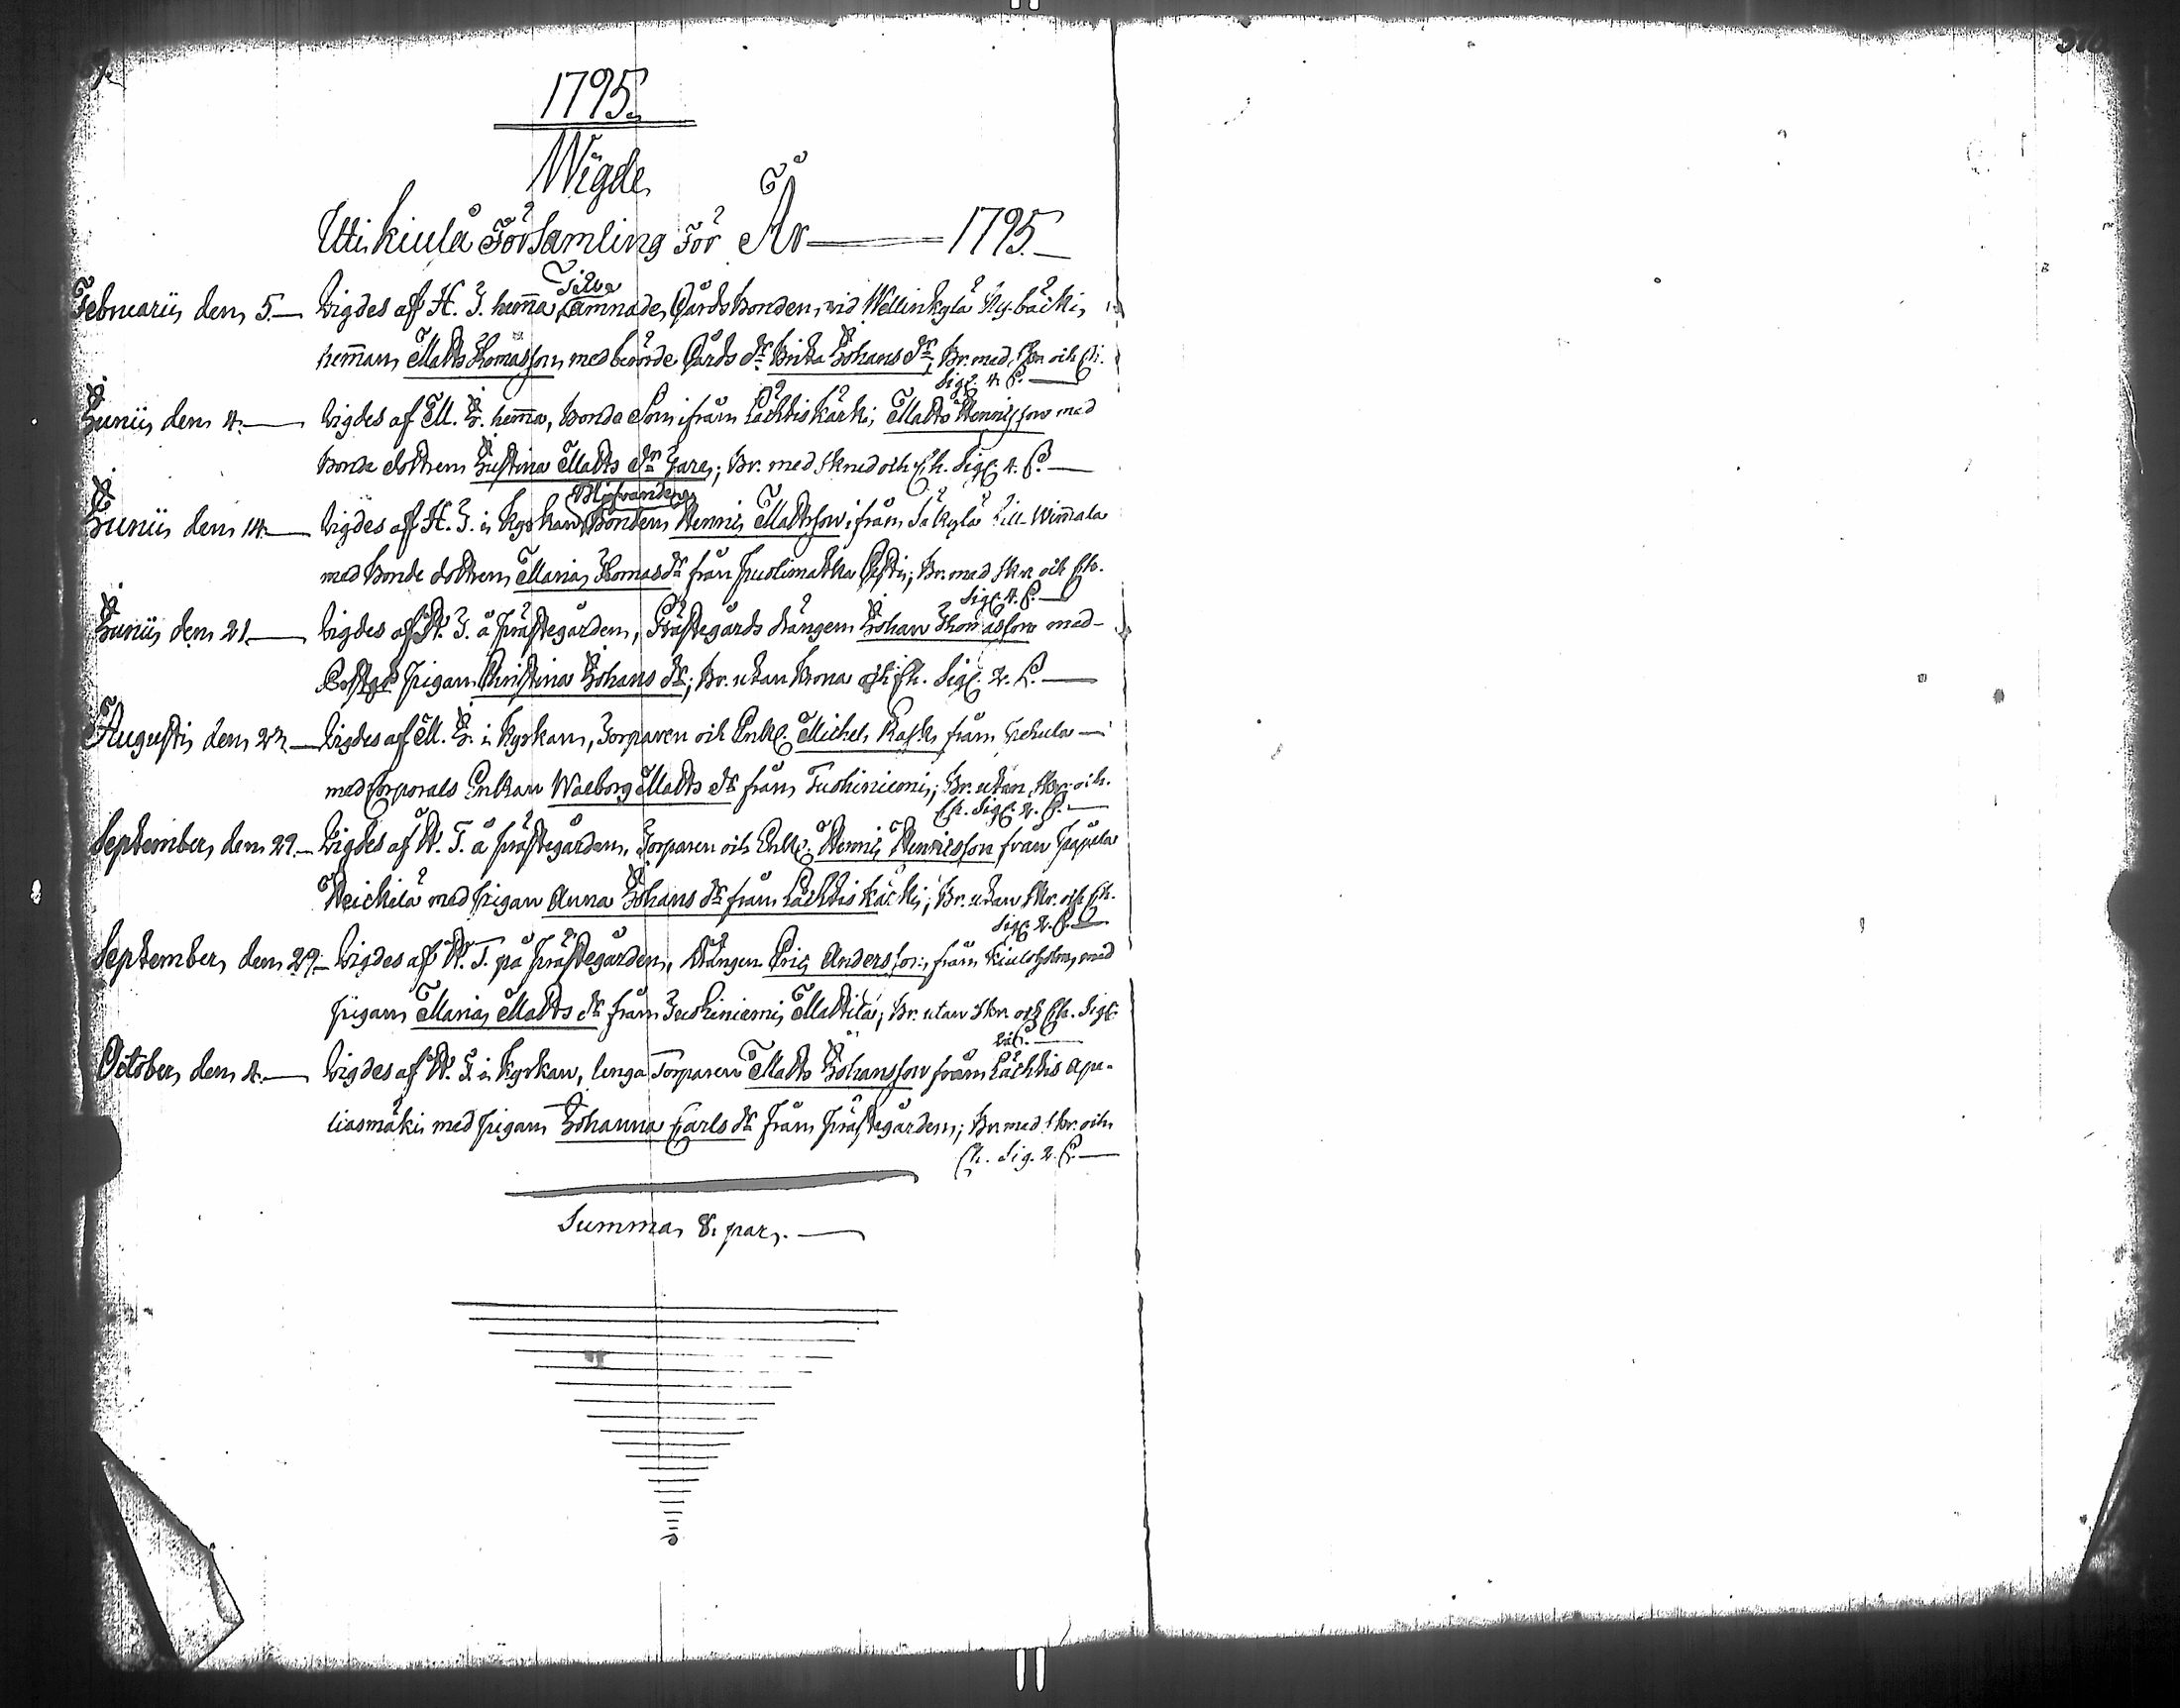 1795.
Wigde
Uti Kiula Församling För År 1795.
Februarii den 5. Vigdes af H. T. hemma Tilva
Lämnade Gårds Bonden vid Wellinkylä Ky-bäcki
hemman Matts Thomasson med berörde Gårds dr Brita Johans dr, Br. med Skr och Ch.
Sigl. 4 S.
Junii den 4. Vigdes af M. J. hemma, Bonde Son ifrån Lächtis Kärki, Matts Henrisson med
Bonde dottren Justina Matts dr Jara; Br. med Skrud och Ch. Sigl. 4. S.
Blifvande
Junii den 14. Vigdes af H. T. i Kyrkan Bonden Henric Mattsson ifrån Säkylä Lill-Wimala
med Bonde dottren Maria Thomas dr från Puolimatka Östi; Br. med Skr och Ch.
Sigl. 4. S.
Junii den 21. Vigdes af H. T. å Prästegården, Prästegårds drängen Johan Thomasson med
Pigan Christina Johans dr; Br. utan Krona och Ch. Sigl. 2. S.
Augusti den 22. Vigdes af M. J. i Kyrkan, Torparen och Enkl. Michel Rask från
med Corporals Enkan Walborg Matts dr från Tuohiniemi; Br. utan Skr. och
Ch. Sigl. 2. S.
September den 29. Vigdes af H. T. å Prästegården, Torparen och Enkl. Henric Henricsson från Pappila
Heickilä med Pigan Anna Johans dr från Lächtis Käcki; Br. utan Skr. och Ch.
Sigl. 2. S.
September den 29. Vigdes af H. T. på Prästegården, Drängen Eric Andersson, från Kiuloholm, med
Pigan Maria Matts dr från Tuohiniemi Mattila; Br. utan Skr. och Ch. Sigl.
2. S.
October den 4. Vigdes af H. T. i Kyrkan, unga Torparen Matts Johansson från Lächtis Apa-
liasmäki med Pigan Johanna Carls dr från Prästegården; Br. med Skr. och
Ch. Sig. 2. S.
Summa 8. par.